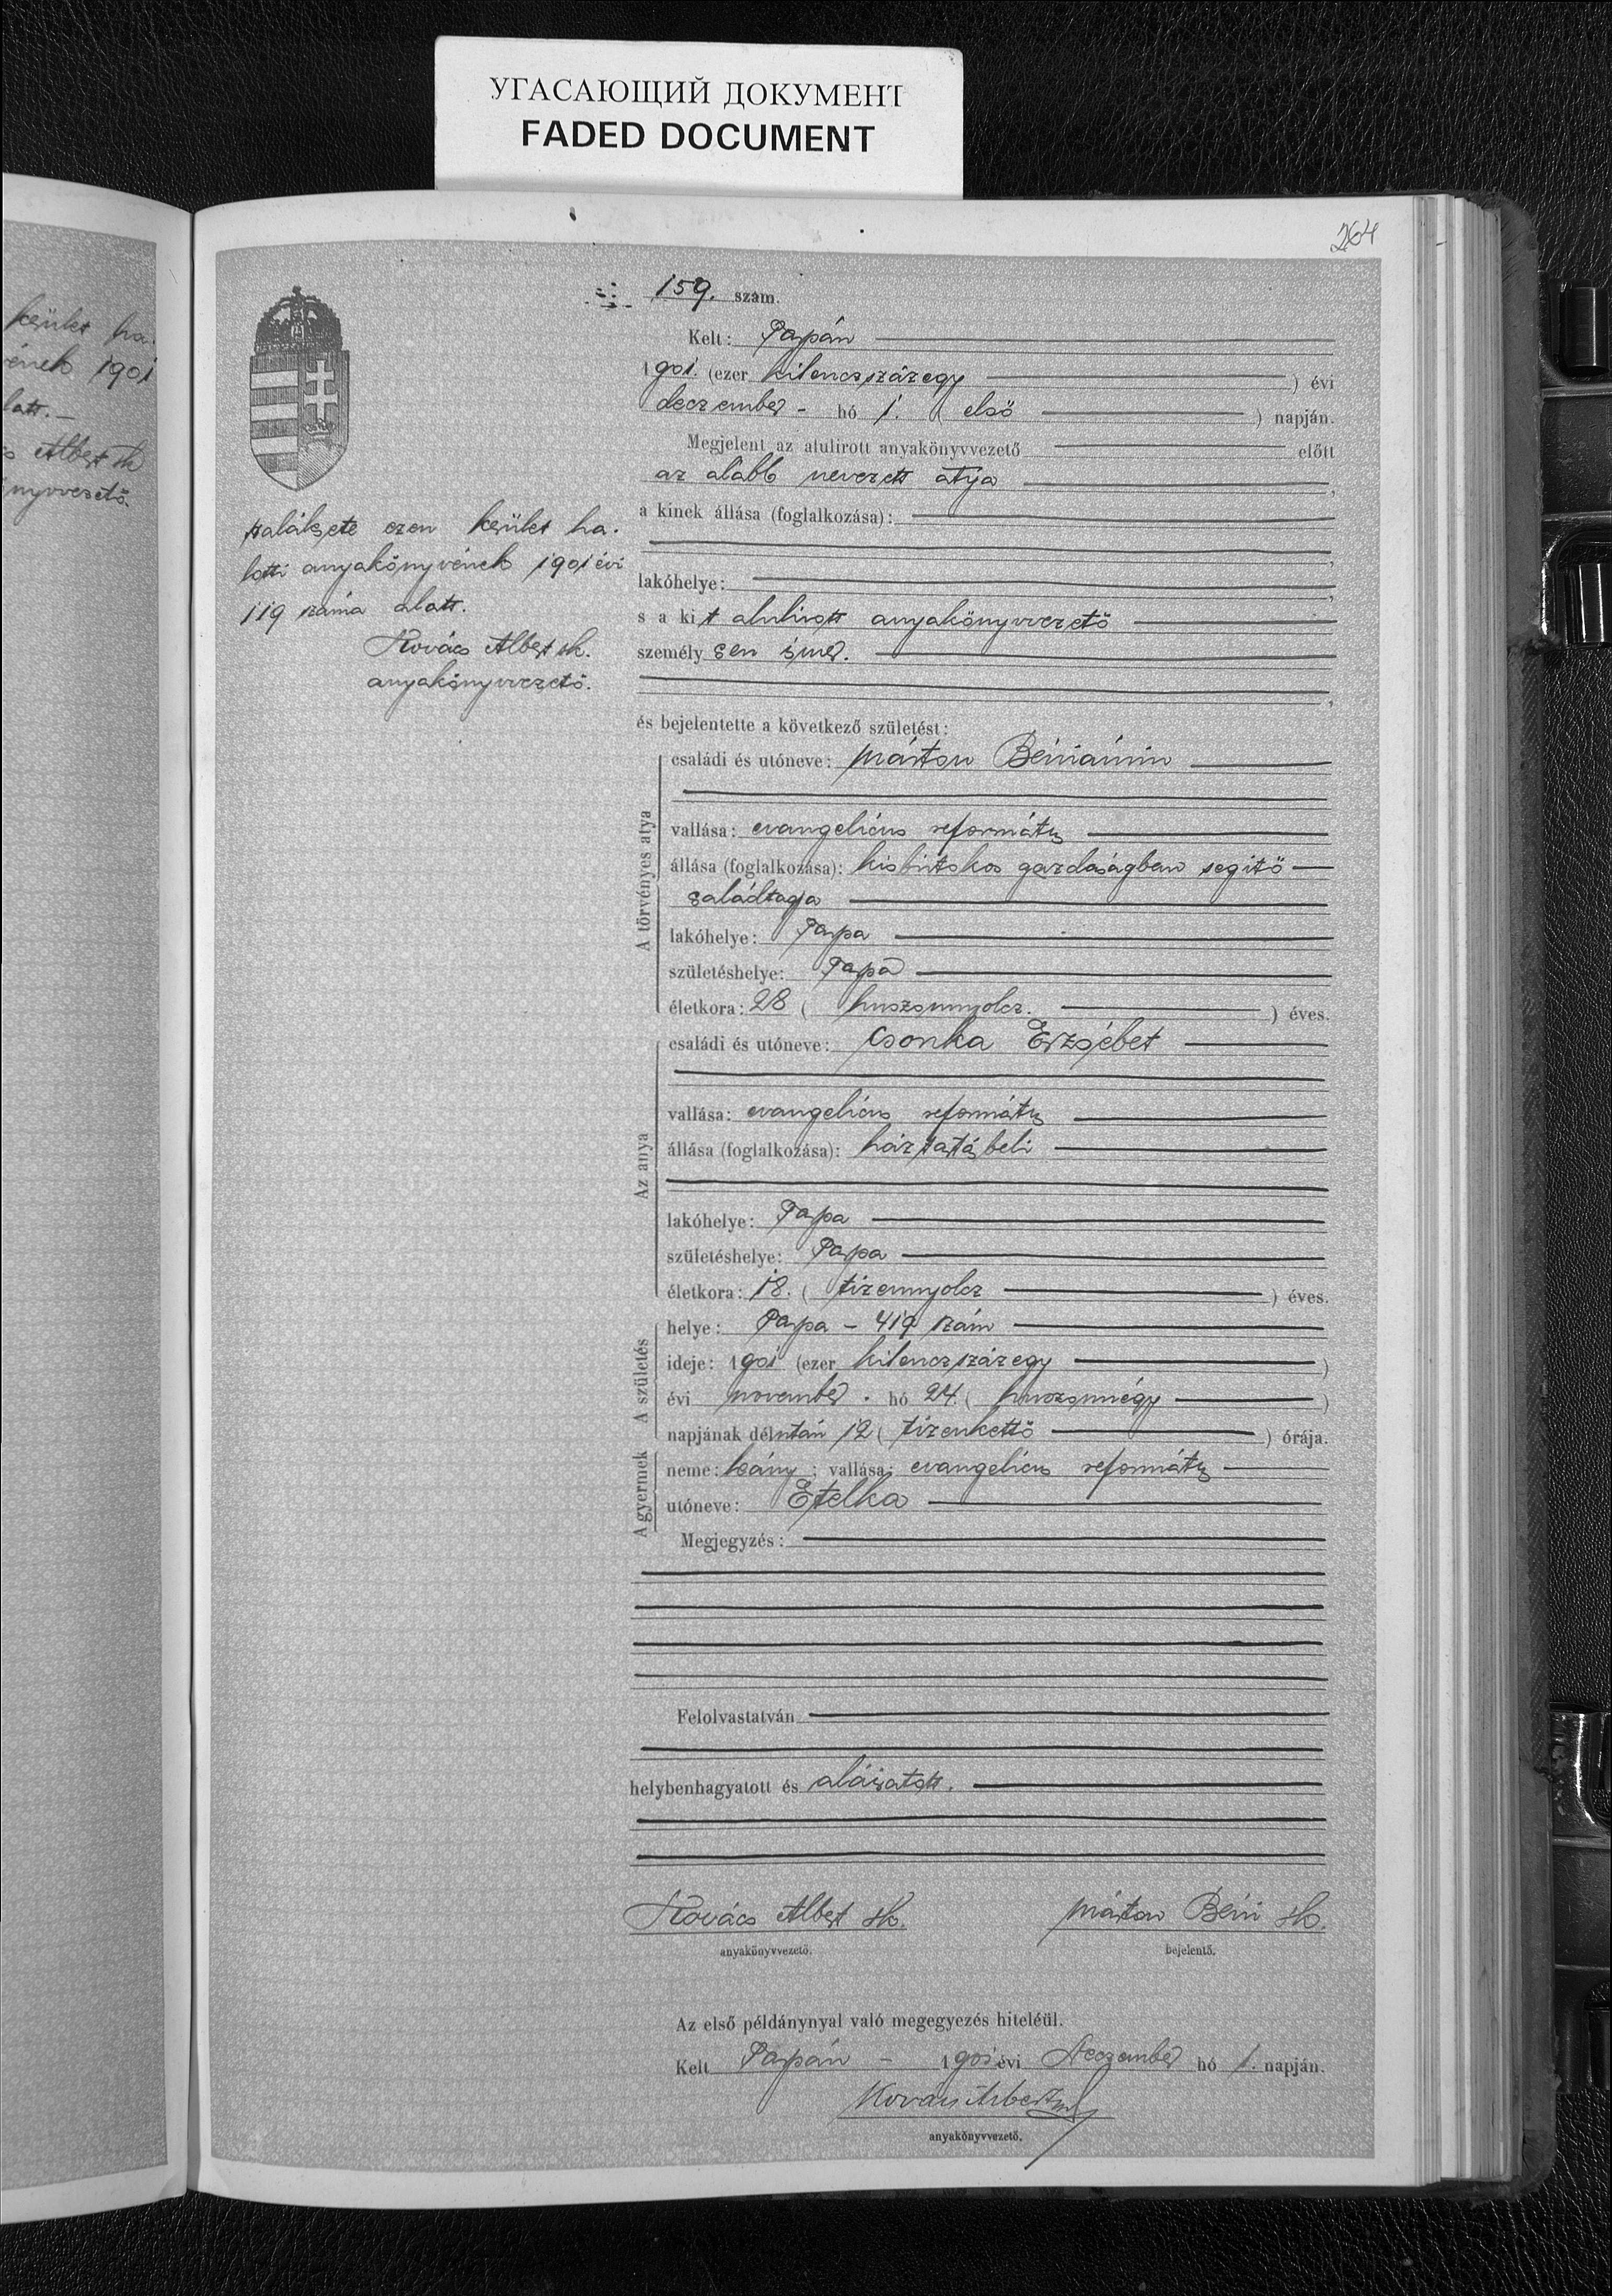 УГАСАЮЩИЙ ДОКУМЕНТ
FADED DOCUMENT
264
kerület ha.
vének 1901
latt. —
s Albert sk
nyvvezető.
159. szám.
Kelt: Tarpán
1901. (ezer kilenczszázegy ) évi
deczember - hó 1. ( első ) napján.
Megjelent az alulirott anyakönyvvezető előtt
az alább nevezett atya ,
a kinek állása (foglalkozása):
,
lakóhelye: ,
s a kit alulirott anyakönyvvezető
személyesen ismer.
,
halálesete ezen kerület ha.
lotti anyakönyvének 1901 évi
119 száma alatt.
Kovács Albert sk.
anyakönyvvezető.
és bejelentette a következő születést:
A törvényes atya
családi és utóneve: Márton Béniámin ,
vallása: evangelicus református
állása (foglalkozása): kisbirtokos gazdaságban segitő
családtagja
lakóhelye: Tarpa
születéshelye: Tarpa
életkora: 28 ( huszonnyolcz. ) éves.
Az anya
családi és utóneve: Csonka Erzsébet
vallása: evangelicus református
állása (foglalkozása): háztartásbeli
lakóhelye: Tarpa
születéshelye: Tarpa
életkora: 18. ( tizennyolcz ) éves.
A születés
helye: Tarpa - 419 szám
ideje: 1901 (ezer kilenczszázegy )
évi november. hó 24. ( huszonnégy )
napjának délután 12 ( tizenkettő ) órája.
A gyermek
neme: leány; vallása: evangelicus református
utóneve: Etelka
Megjegyzés:
Felolvastatván
helybenhagyatott és aláiratott.
Kovács Albert sk.
anyakönyvvezető.
Márton Béni sk.
bejelentő.
Az első példánynyal való megegyezés hiteléül.
Kelt Tarpán - 1901 évi deczember hó 1. napján.
Kovács Albert
anyakönyvvezető.